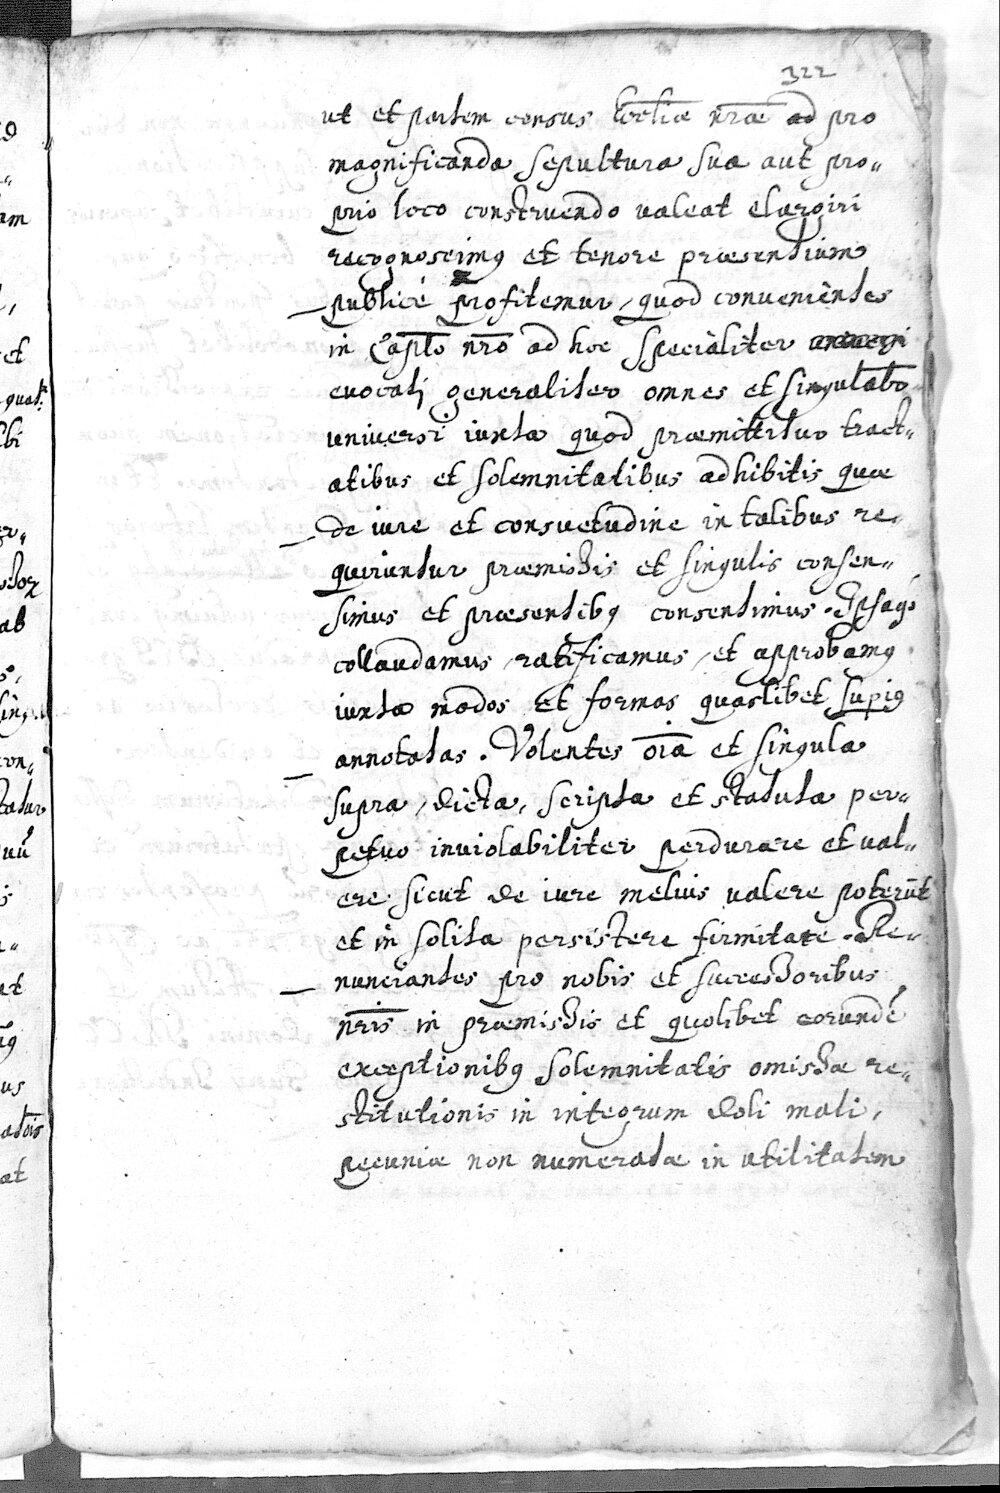 322
ut et partem census Ecclīæ nræ ad pro
magnificanda sepultura sua aut pro„
prio loco construendo valeat elargiri
recognoscimꝰ et tenore præsentium
publicè profitemur, quod convenientes
in Capłō nrō ad hoc specialiter
evocati generaliter omnes et singulatō
universi iuxta quod præmittitur tract„
atibus et solemnitatibus adhibitis quæ
de iure et consuetudine in talibus re„
quiruntur præmissis et singulis consen„
simus et præsentibꝰ consentimus. Ipsaqꝫ
collaudamus, ratificamus, et approbamꝰ
iuxta modos et formas quaslibet supiꝰ
annotatas. Volentes oīa et singula
supra, dicta, scripta et statuta per„
petuo inviolabiliter perdurare et val„
ere sicut de iure melius valere poterūt
et in solita persistere firmitate. Re„
nunciantes pro nobis et successoribus
nrīs in præmissis et quolibet eorundē
exceptionibꝰ solemnitatis omissæ re„
stitutionis in integrum doli mali,
pecuniæ non numeratæ in utilitatem